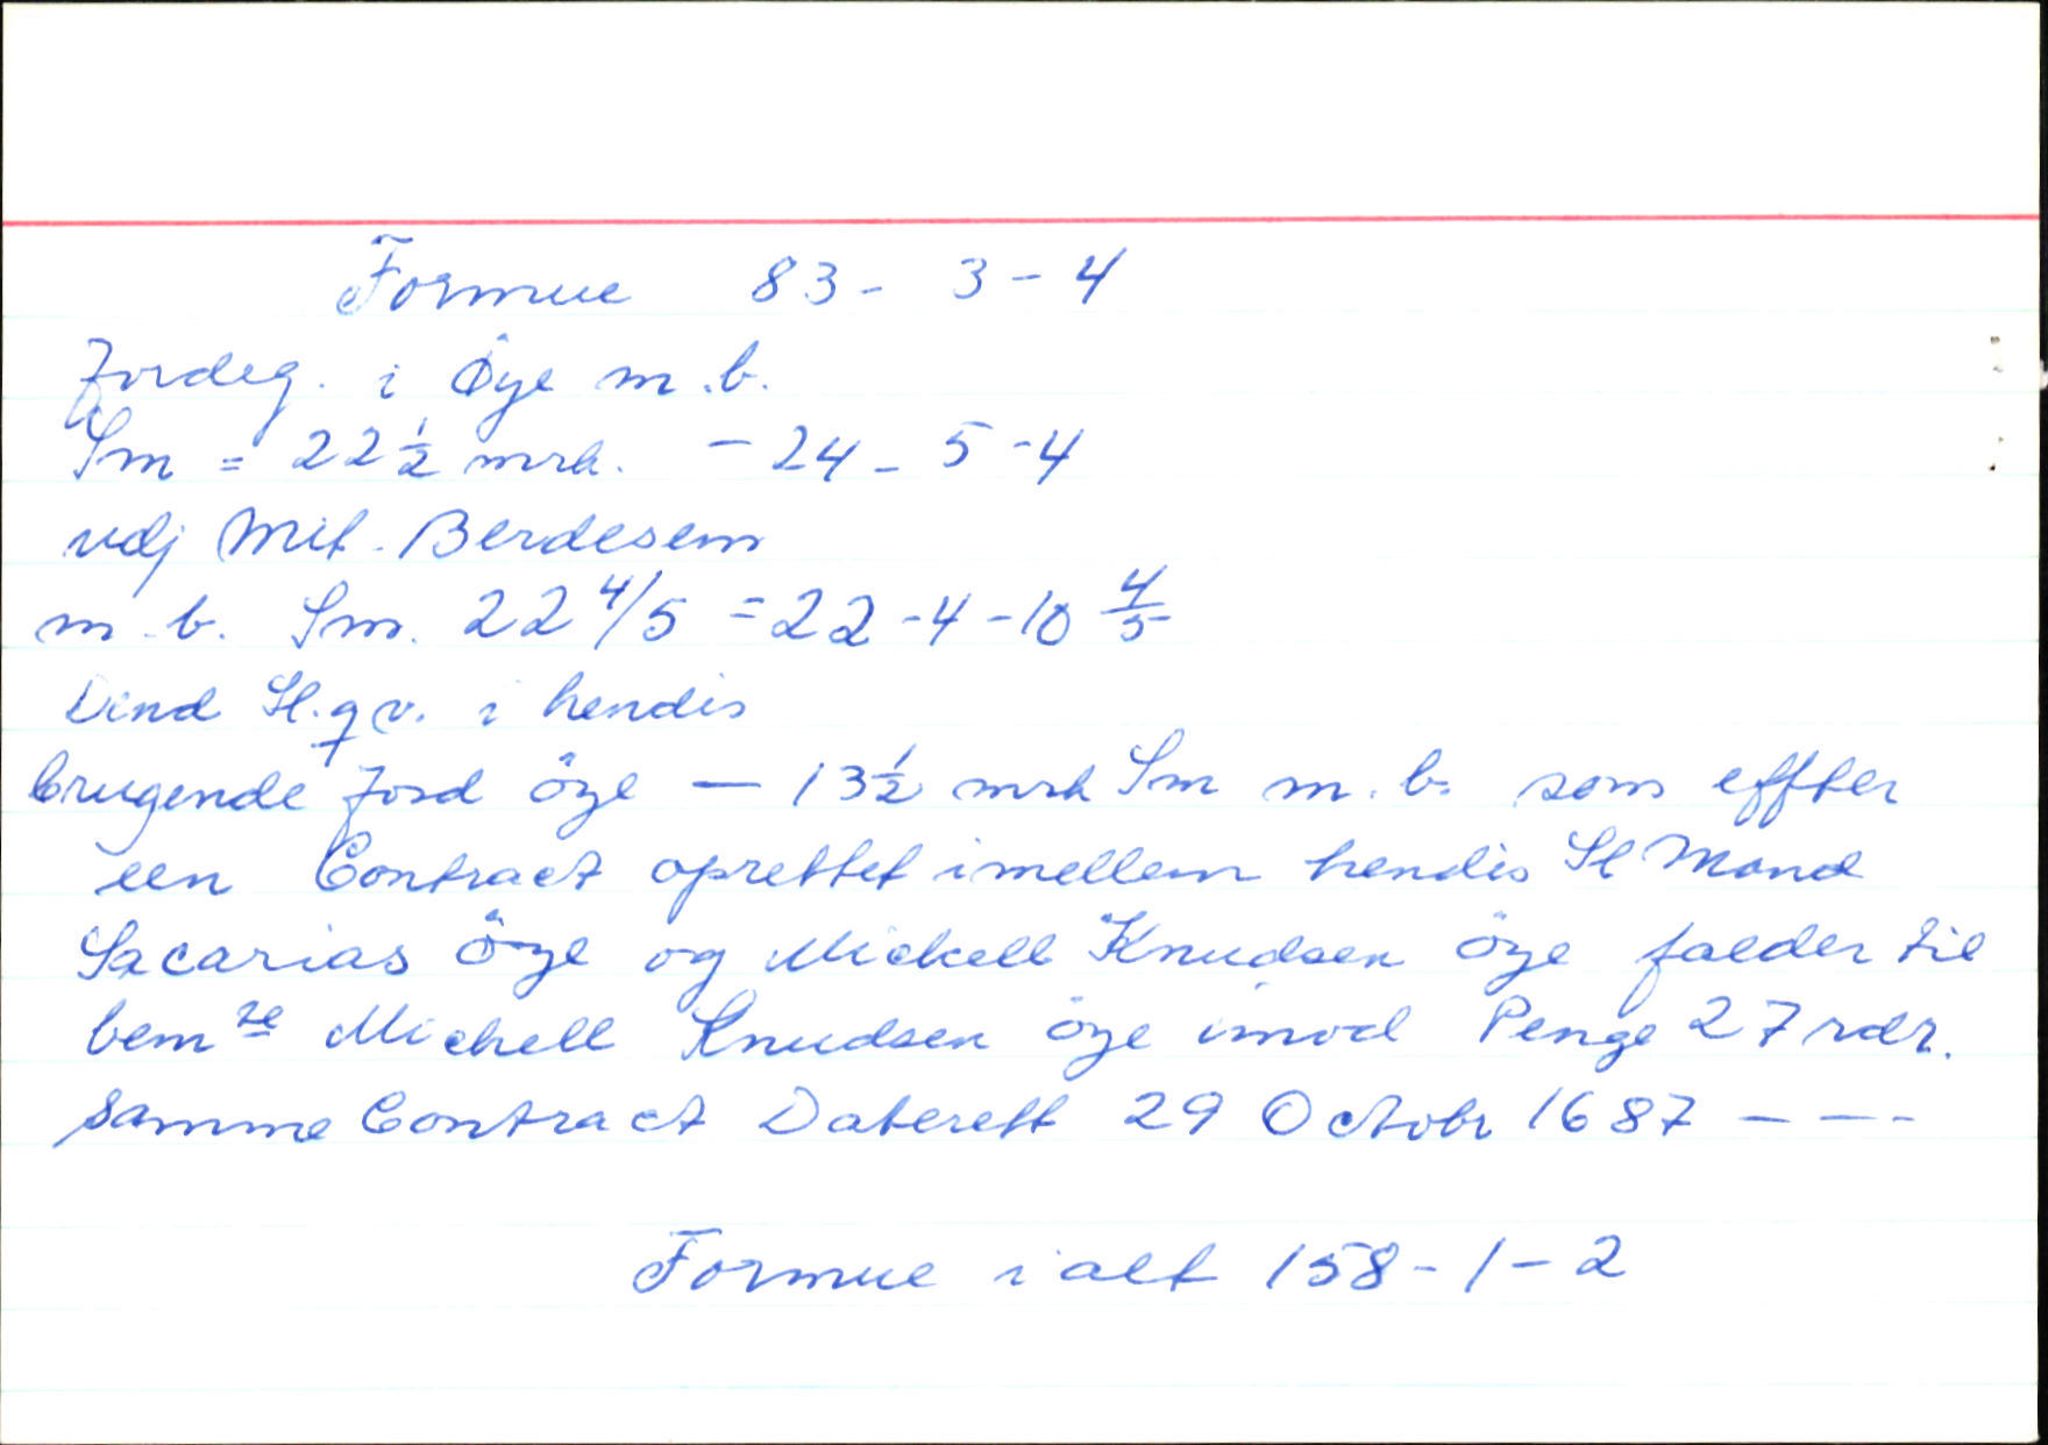 Formue 83 - 3 - 4
Jordeg. i Øye m.b.
Sm = 22 1/2 mrk. - 24 - 5 - 4
udj Mit. Berdesem
m.b. Sm. 22 4/5 = 22 - 4 - 10 4/5
Dend Sl. qv. i hendis
brugende Jord öye — 13 1/2 mrk Sm m.b. som effter
een Contract oprettet imellem hendis Sl Mand
Sacarias öye og Mickell Knudsen öye falder til
bem te Michell Knudsen öye imod Penge 27 rdr.
samme Contract Daterett 29 Octobr 1687 - - -
Formue i alt 158 - 1 - 2